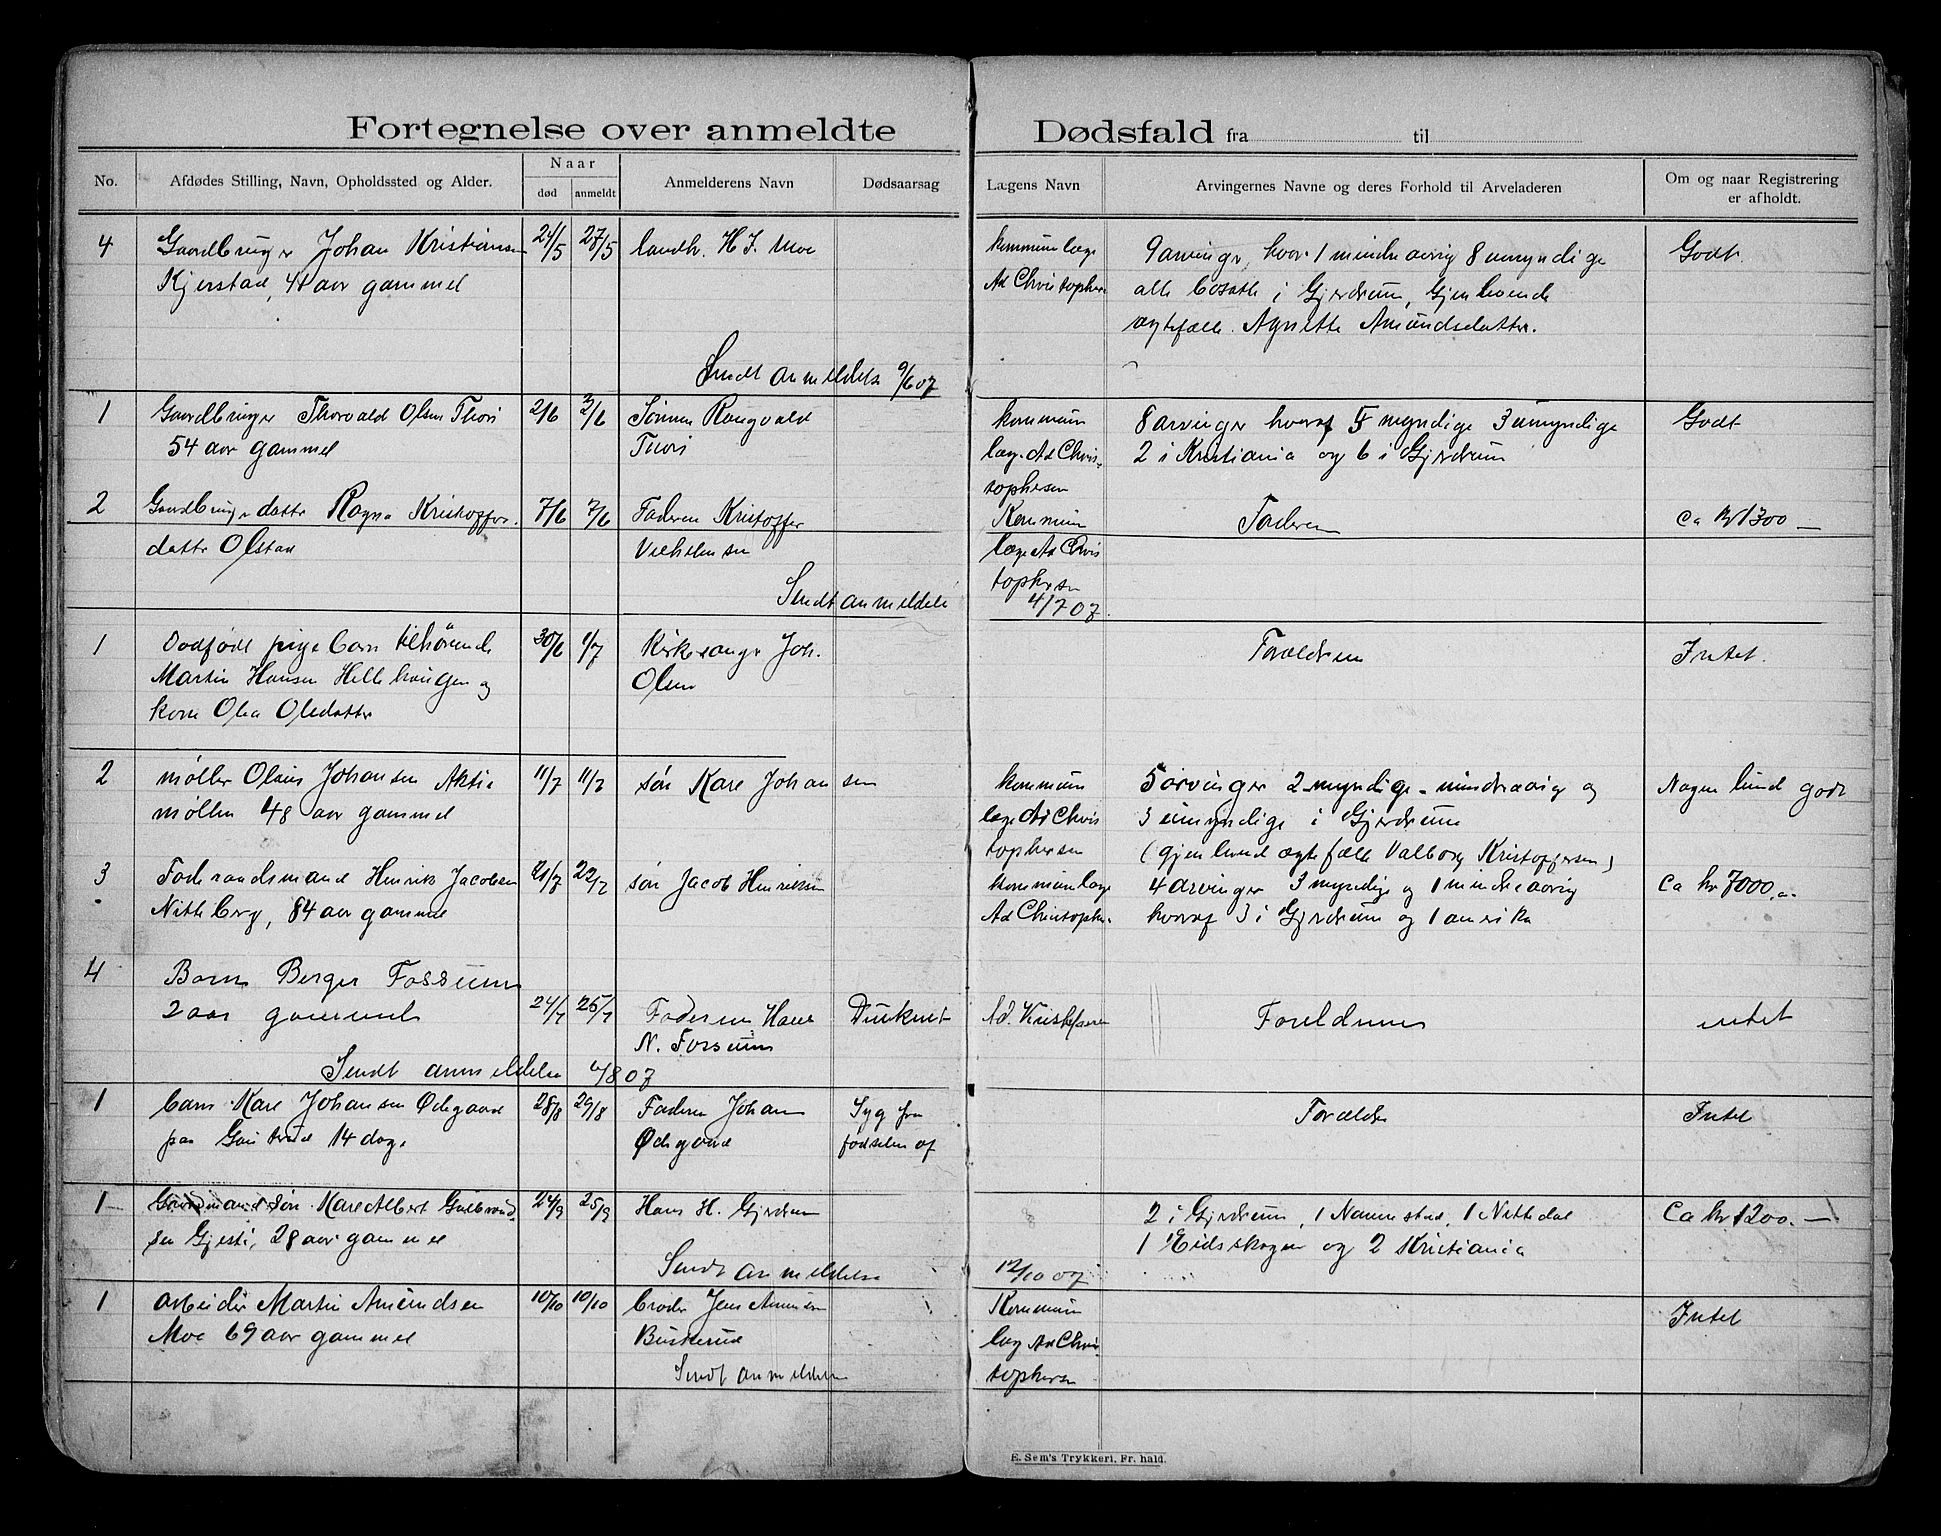 Fortegnelse over anmeldte Dødsfald fra til
No.
Afdødes Stilling, Navn, Opholdssted og Alder.
Naar
død
anmeldt
Anmelderens Navn
Dødsaarsag
Lægens Navn
Arvingernes Navne og deres Forhold til Arveladeren
Om og naar Registrering
er afholdt.
4 Gaardbruger Johan Kristiansen 24/5 27/5 landh. H. J. Moe kommunlæge 9 arvinge, hvor 1 mindreaarig 8 umyndige Godt.
Kjerstad, 41 aar gammel Ad Christopher- alle bosatte i Gjerdrum, Gjenlevende
ægtefælle. Agnette Amundsdatter.
Sendt anmeldelse 9/6 07
1 Gaardbruger Thorvald Olsen Thori 2/6 3/6 Sønnen Rangvald kommun 8 arvinger hvoraf 5 myndige 3 umyndige Godt
54 aar gammel Thori læge Ad Chris- 2 i Kristiania og 6 i Gjerdrum
tophersen
2 Gaardbruger datter Ragna Kristoffer- 7/6 7/6 Faderen Kristoffer Kommun Faderen Ca kr 1300 —
datter Olstad Vilhelmsen læge Ad Chris
tophersen
Sendt anmeldelse 4/7 07.
1 Dødfødt pige barn tilhørende 30/6 1/7 Kirkesanger Joh. Forældrene Intet.
Martin Hansen Hellehaugen og Olsen
kone Olea Olsdatter
2 møller Olaus Johansen Aktie 11/7 11/7 søn Kare Johansen kommun 5 arvinger 2 myndige - mindreaarig og Nogen lund godt
møllen 48 aar gammel læge Ad Chris 3 umyndige i Gjerdrum
tophersen (gjenlevend ægtefælle Valborg Kristoffersen)
3 Foderaadsmand Henrik Jacobsen 21/7 22/7 søn Jacob Henriksen kommunlæge 4 arvinger 3 myndige og 1 mindreaarig Ca kr 7000.-
Nitteberg, 84 aar gammel Ad Christophe- hvoraf 3 i Gjerdrum og 1 amerika
4 Barn Berger Fossum
2 aar gammel 24/7 25/7 Faderen Hans Druknet Ad. Kristofersen Foreldrene intet
N. Fossum
Sendt anmeldelse 4/8 07
1 barn Kare Johansen Ødegaard 28/8 29/8 Faderen Johan Syg fra Forældre Intet
paa 14 dage Ødegaard fødselen af
1 Gaardmandsøn Kare Albert Gulbrand- 24/9 25/9 Hans H. Gjerdrum 2 i Gjerdrum, 1 Nannestad, 1 Nittedal Ca kr 1200. —
sen Gjesti, 28 aar gammel 1 Eidsskogen og 2 Kristiania
Sendt anmeldelse 12/10 07
1 arbeider Martin Amundsen 10/10 10/10 broder Jens Amunsen Kommun Intet
Moe 69 aar gammel Buskerud læg Ad Chris-
Sendt anmeldelse tophersen
E. Sem's Trykkeri, Fr. hald.